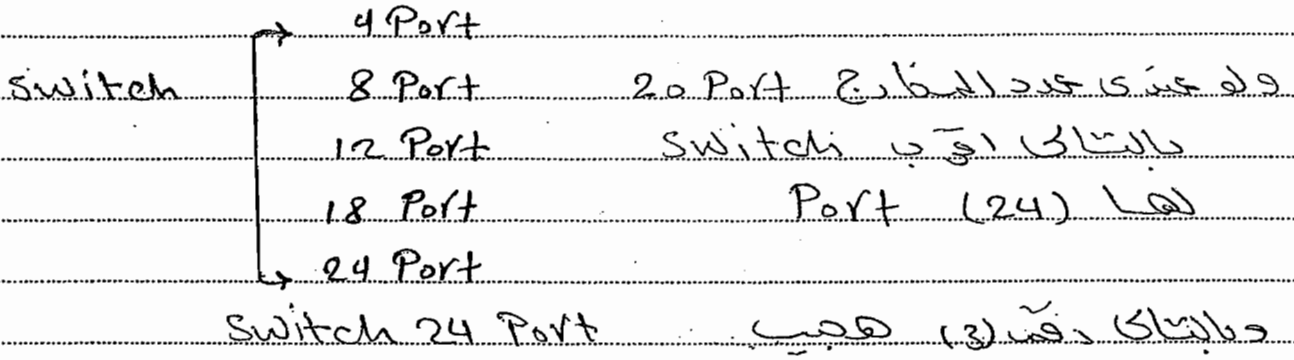 4 Port
Switch 8 Port ولو عندى عدد المخارج 20 Port
12 Port بالتالى اقرب Switch
18 Port لها (24) Port
24 Port
وبالتالى (3) هجيب Switch 24 Port